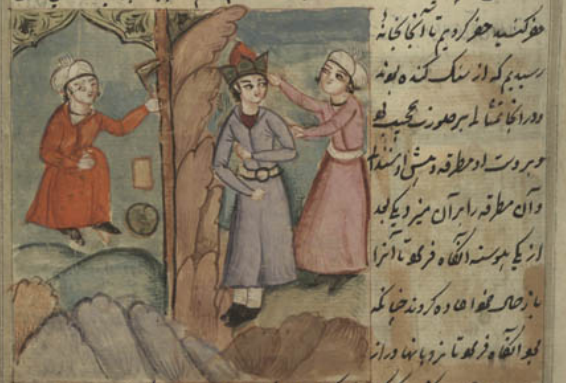 حفر کنید حفر کردیم تا آنجا بخانهٔ
رسیدیم که از سنک کنده بودند
ودر آنجا تمثالی بر صورت عجیب بود
وبر دست او مطرقه و پیش او سندان
وآن مطرقه را بر آن میزد یکی بعد
از یکی پیوسته آنکاه فرمود تا آنرا
باز حال خود اعاده کردند چنانکه
بود آنکاه فرمود تا نردبانها دراز